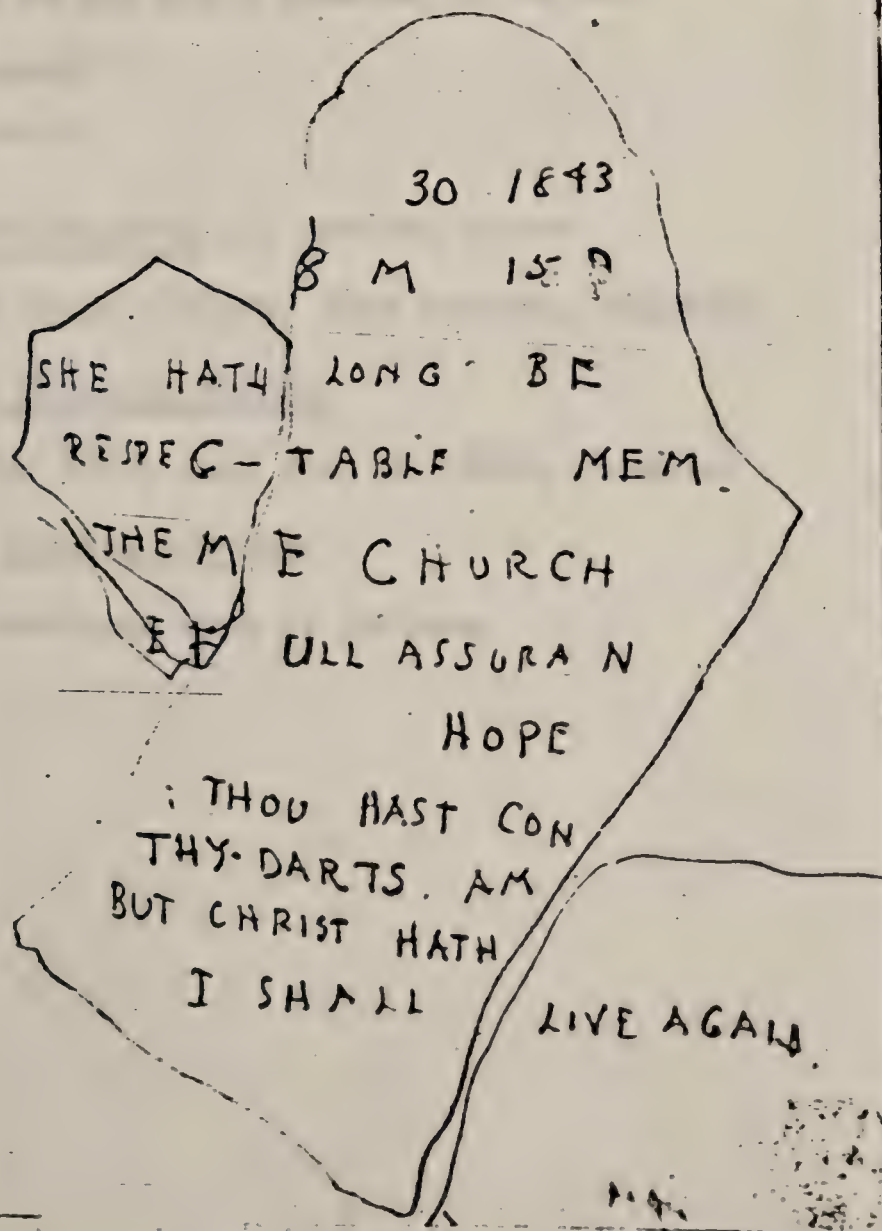 30 1843
8 M 15 D
SHE HATH LONG BE
RESPEC-TABLE MEM
THE M E CHURCH
ULL ASSURA N
HOPE
: THOU HAST CON
THY. DARTS. AM
BUT CHRIST HATH
I SHALL LIVE AGAIN